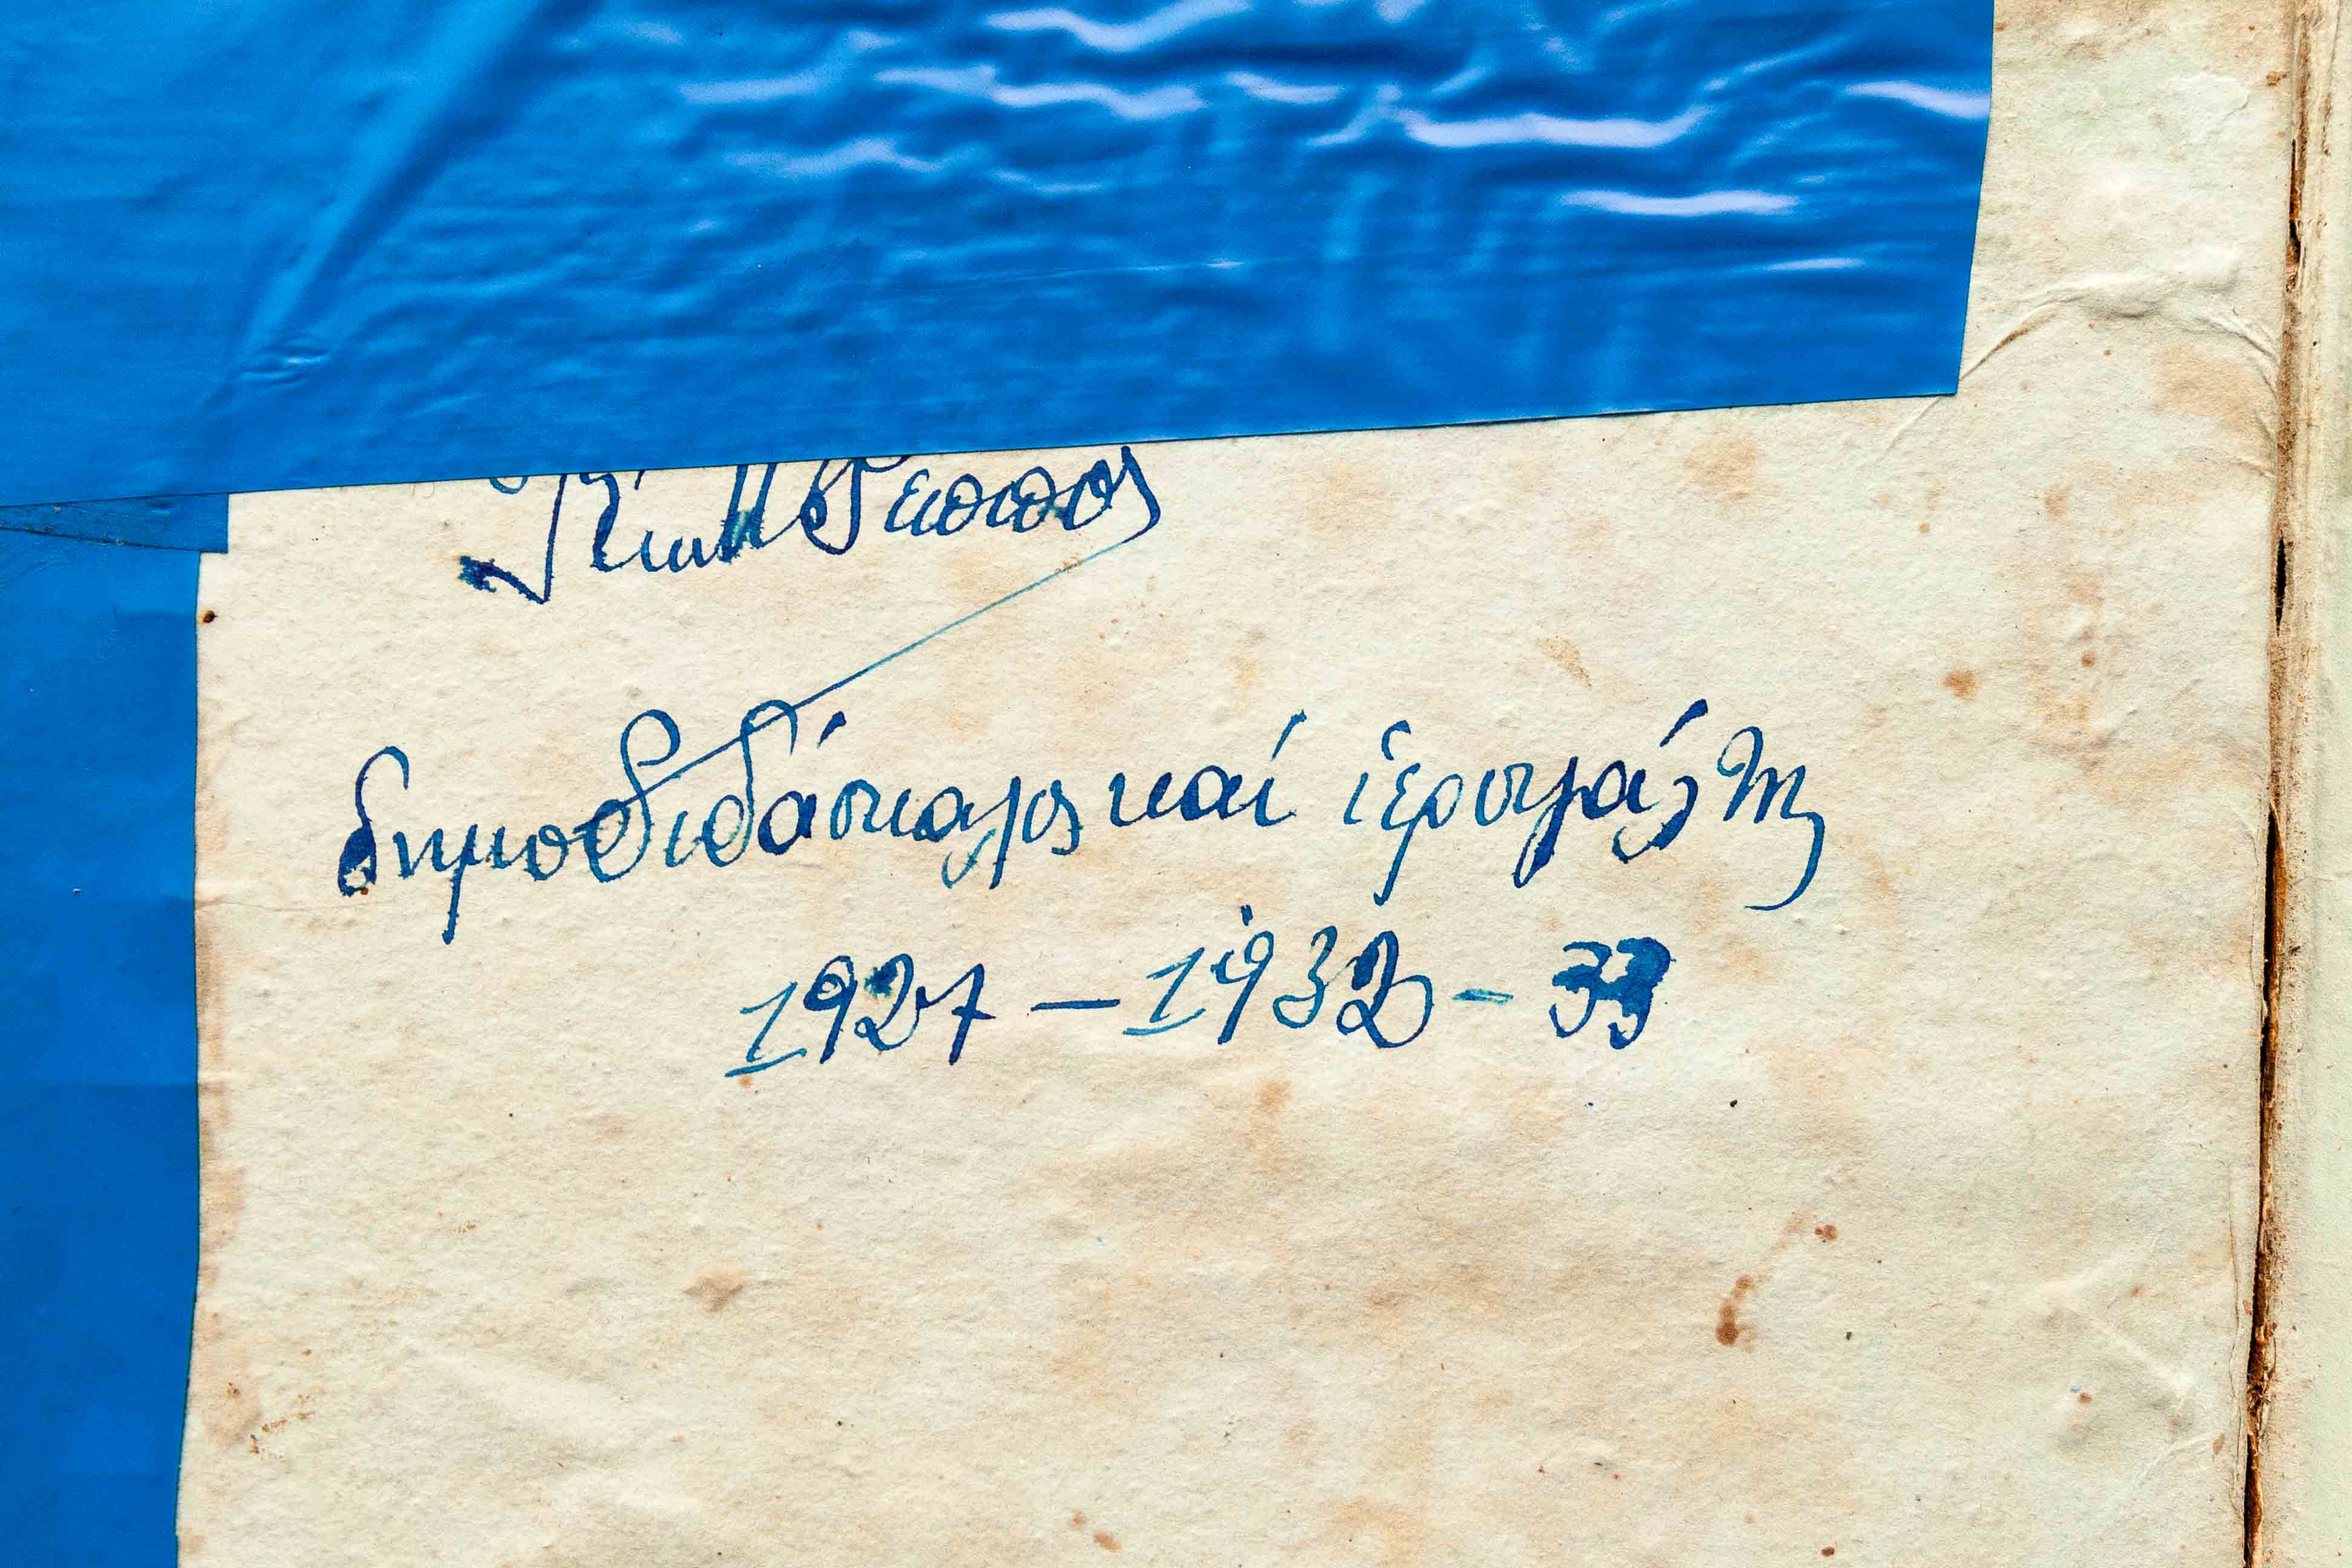 δημοδιδάσκαλος καί ἱεροψάλτης
1927 - 1932 - 33